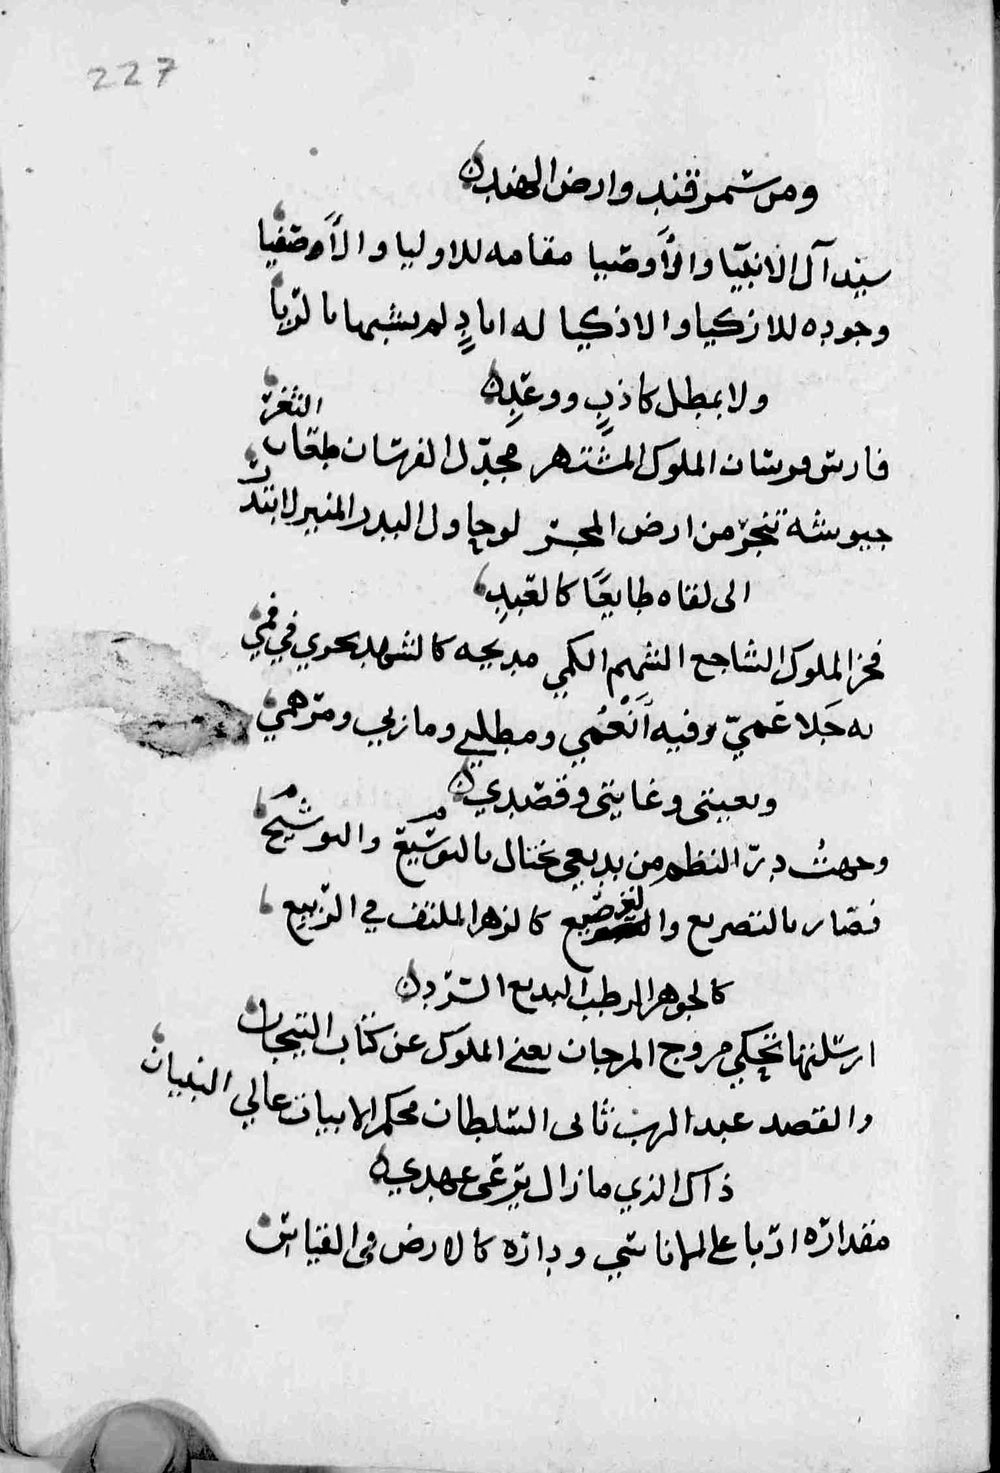 227
ومن سمرقند وارض الهند
سيد آل الانبيا والأوصيا مقامه للاوليا والأصفيا
وجوده للازكيا والاذكيا له اياد لم يشبها بالريا
ولا بمطل كاذب ووعد
النغر
فارس فرسان الملوك المشتهر مجدّل الفرسان طعان
جيوشه تنجرّ من ارض المجر لو حاول البدر المنير لابتدر
الى لقاه طايعًا كالعبد
فخر الملوك الشاجع الشهم الكمي مديحه كالشهد يحوي في فمي
به جلا غمي وفيه أنعمي ومطلبي ومأربي ومرهمي
وبغيتي وغايتي وقصدي
وجهت درّ النظم من بديعي يختال بالتوشيع والتوشيح
فصار بالتصريع والترصيع كالزهر الملتف في الربيع
كالجوهر الرطب البديع السرد
ارسلتها تحكي مروج المرجان يعني الملوك عن كتاب التيجان
والقصد عبد الرب ثاني السلطان محكم الابيات عالي البنيان
ذاك الذي مازال يرعى عهدي
مقداره اربا على وداره كالارض في القياس